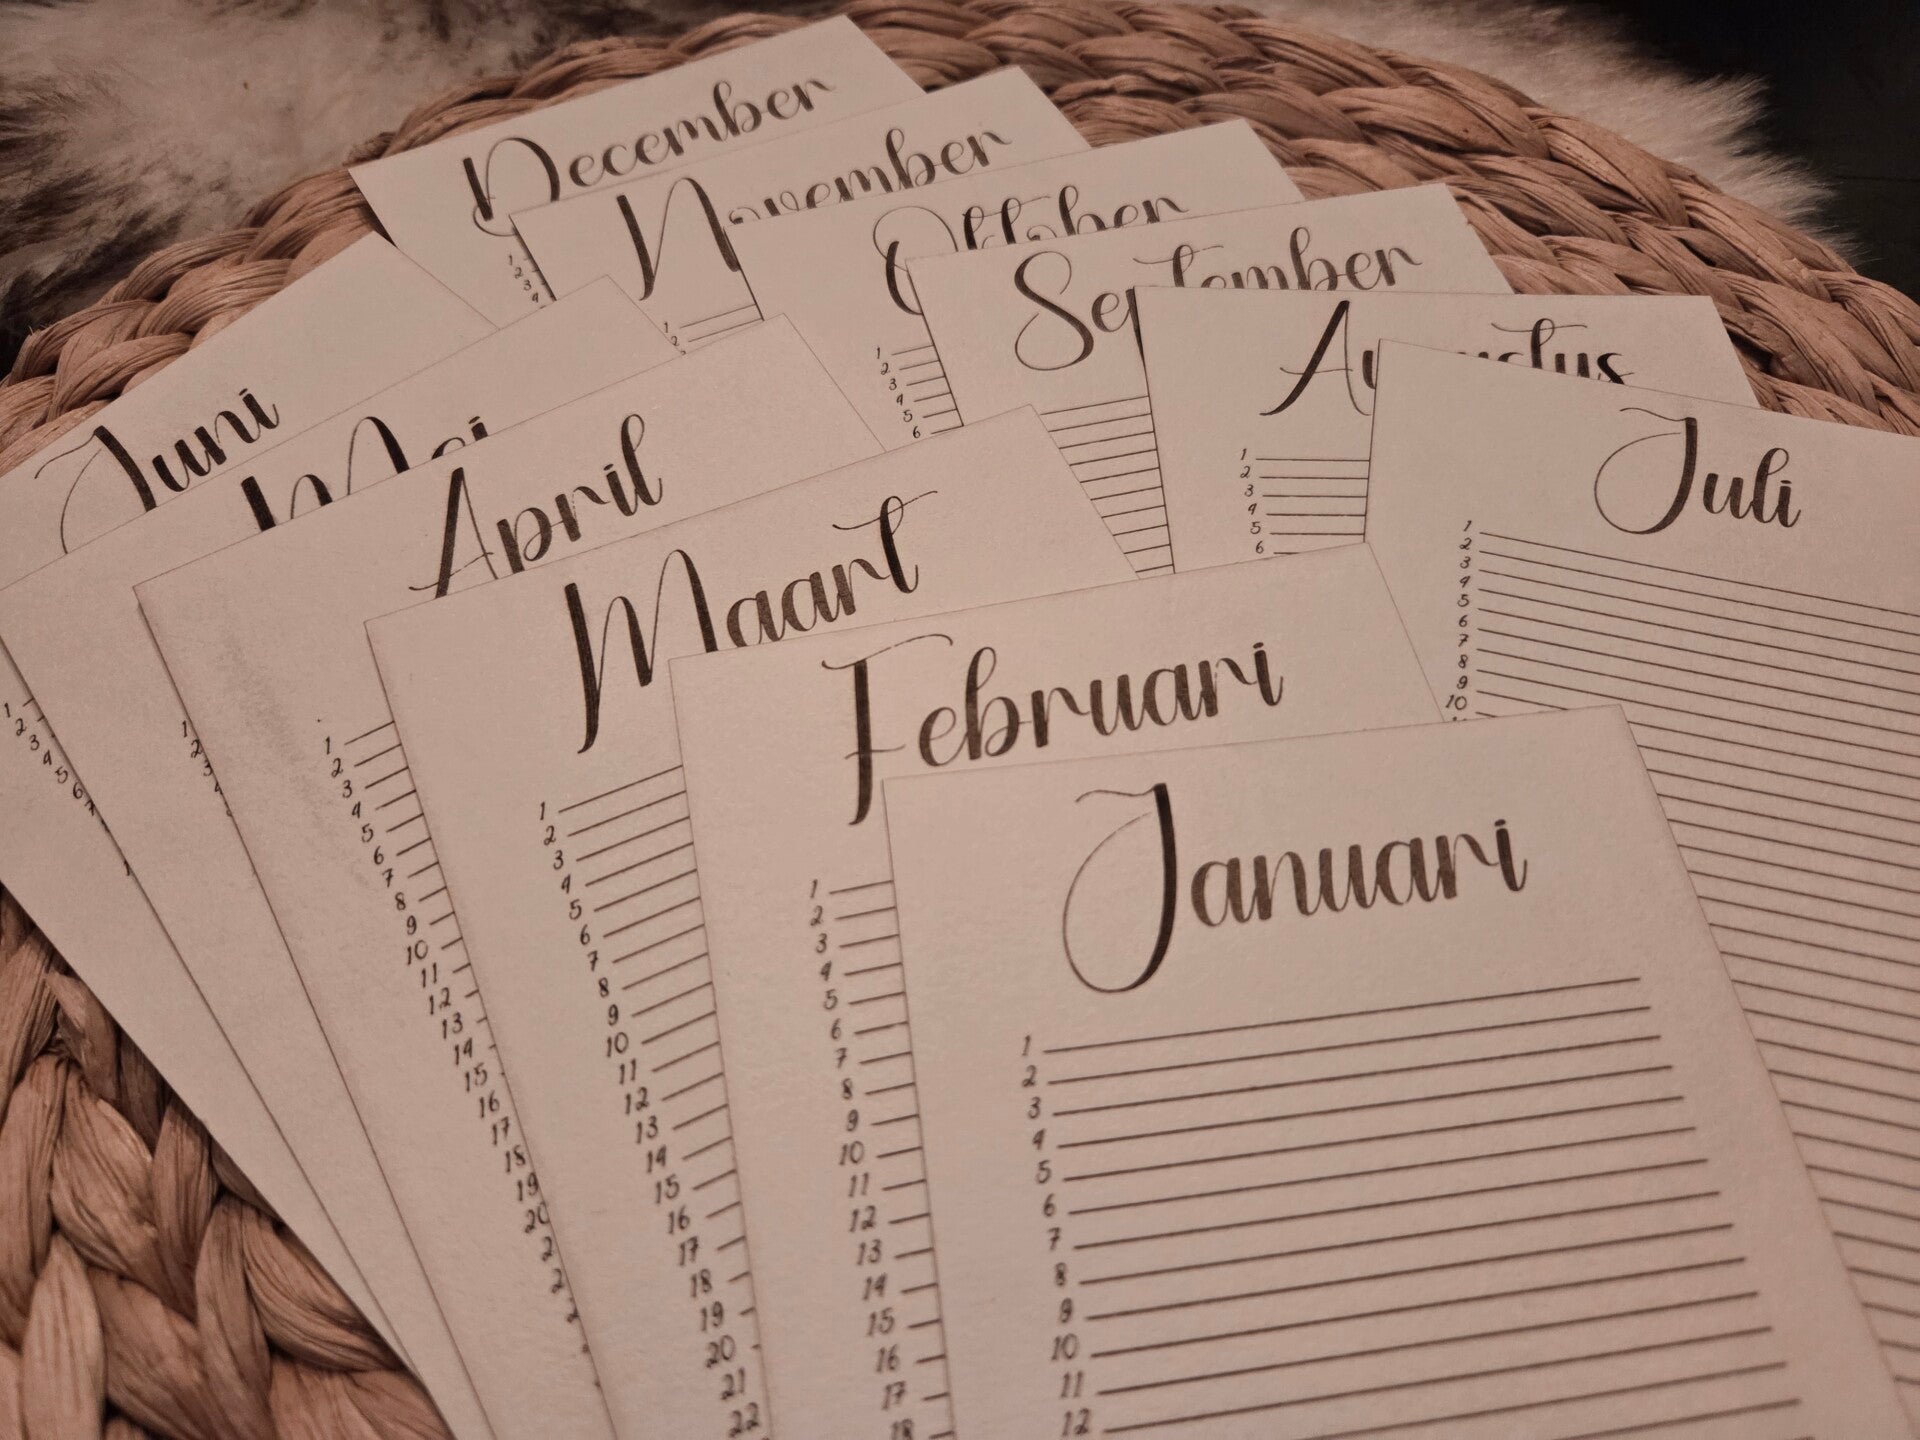 December
1
2
3
4
November
1
2
Oktober
1
2
3
4
5
6
September
Augustus
1
2
3
4
5
6
Juli
1
2
3
4
5
6
7
8
9
10
Juni
1
2
3
4
5
6
Mei
1
2
3
April
1
2
3
4
5
6
7
8
9
10
11
12
13
14
15
16
17
18
19
20
Maart
1
2
3
4
5
6
7
8
9
10
11
12
13
14
15
16
17
18
19
20
21
22
Februari
1
2
3
4
5
6
7
8
9
10
11
12
13
14
15
16
17
18
Januari
1
2
3
4
5
6
7
8
9
10
11
12